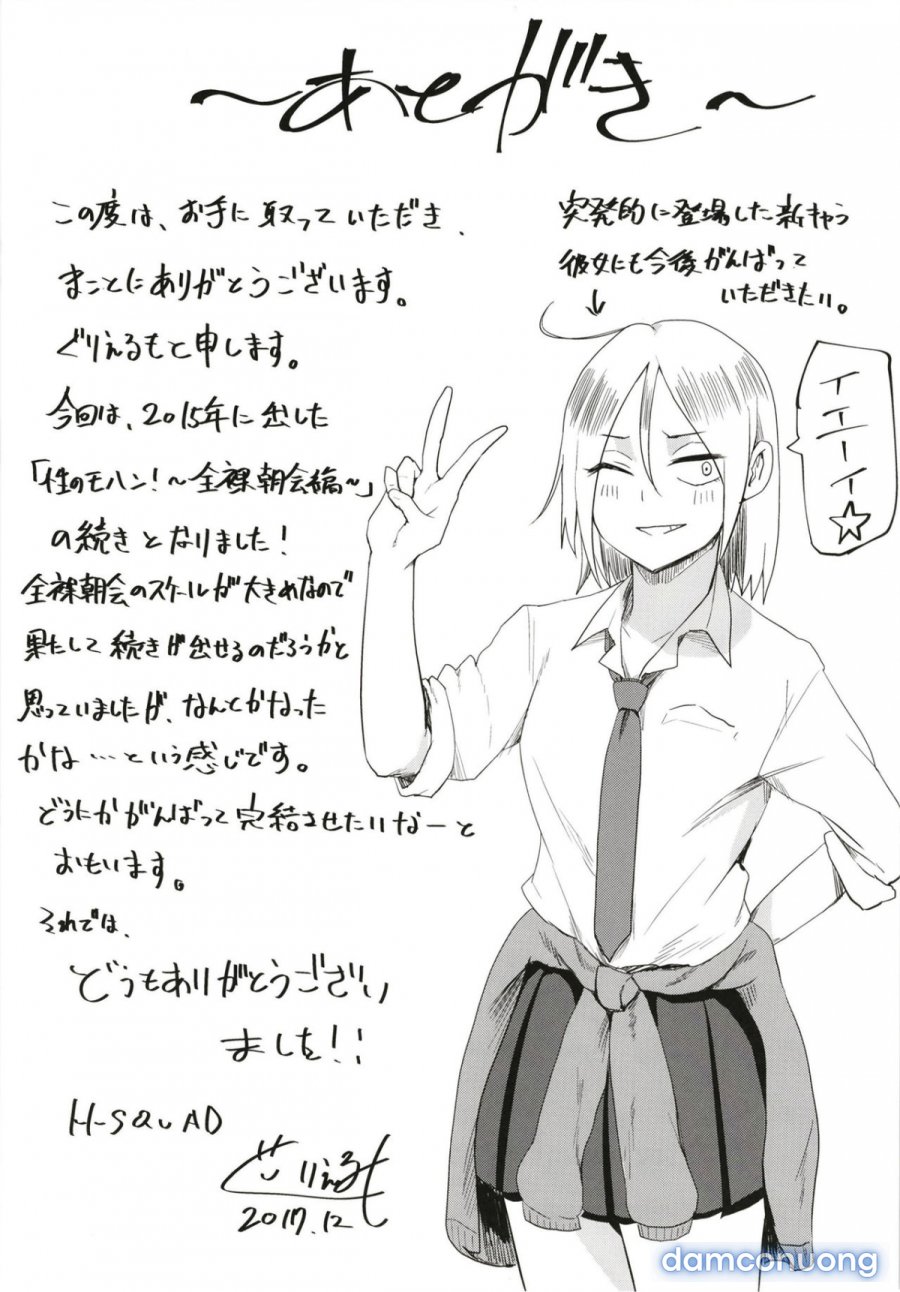 ～あとがき～
この度は、お手に取っていただき、
まことにありがとうございます。
ぐりえるもと申します。
今回は、2015年に出した
「性のモハン！～全裸朝会編～」
の続きとなりました！
全裸朝会のスケールが大きめなので
果たして続きが出せるのだろうかと
思っていましたが、なんとかなった
かな…という感じです。
どうにかがんばって完結させたいなーと
おもいます。
それでは、
どうもありがとうござい
ました！！
H-SQUAD
ぐりえるも
2017.12
突発的に登場した新キャラ
彼女にも今後がんばって
いただきたい。
イエーイ☆
damconuong